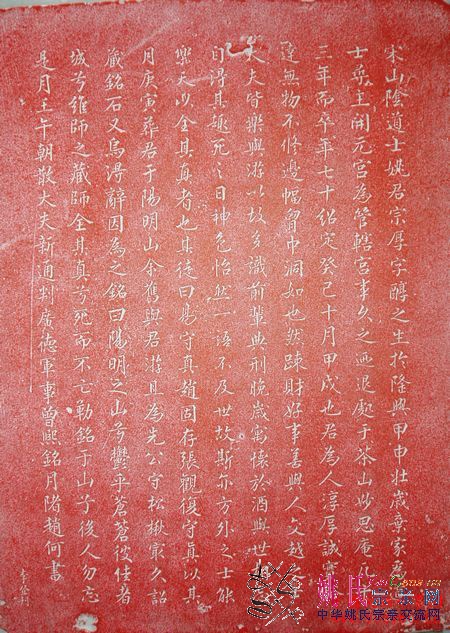 宋山陰道士姚君宗厚字醇之生於隆興甲申壯歲棄家為
士棄主開元宮為管轄宮事久之迺退處于茶山妙思庵凡
三年而卒年七十紹定癸巳十月甲戌也君為人淳厚誠實
達無物不修邊幅胷中洞如也然疎財好事善與人交越之
大夫皆樂與游以故多識前輩典刑晚歲寓懷於酒與世
自得其趣死之日神色怡然一語不及世故斯亦方外之士能
樂天以全其真者也其徒曰易守真趙固存張觀復守真以其
月庚寅葬君于陽明山余舊與君游且為先公守松楸最久詔
藏銘石又烏得辭因為之銘曰陽明之山兮鬱乎蒼蒼彼佳者
城兮維師之藏師全其真兮死而不亡勒銘于山兮後人勿忘
是月壬午朝散大夫新通判廣德軍事曾熙銘月渚趙何書
姚氏宗亲网
中华姚氏宗亲交流网